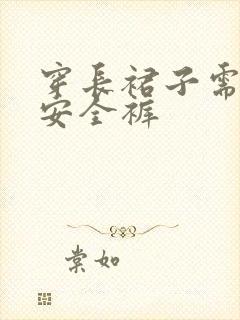 穿長裙子需
安全褲
棠如